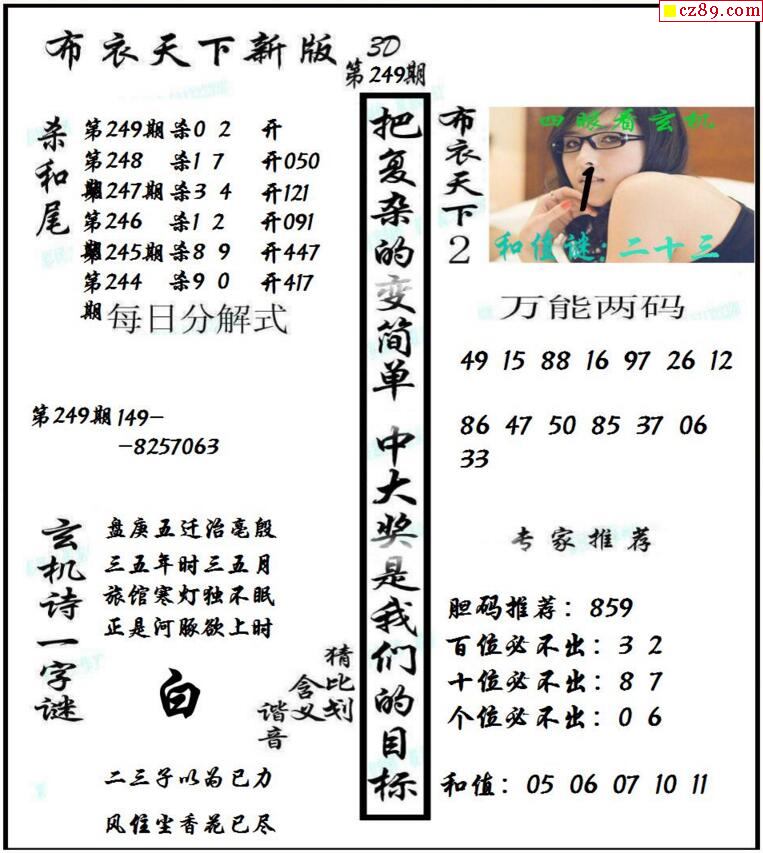 cz89.com
布衣天下新版 3D
第249期
杀和尾
第249期 杀0 2 开
第248 杀1 7 开050
期247期 杀3 4 开121
第246 杀1 2 开091
期245期 杀8 9 开447
第244 杀9 0 开417
期
每日分解式
第249期149-
-8257063
玄机诗一字谜
盘庚五迁治亳殷
三五年时三五月
旅馆寒灯独不眠
正是河豚欲上时
白
猜比划
含义
谐音
二三子以为已力
风住尘香花已尽
把复杂的变简单 中大奖是我们的目标
布衣天下2
四眼看玄机
1
和值谜:二十三
万能两码
49 15 88 16 97 26 12
86 47 50 85 37 06
33
专家推荐
胆码推荐: 859
百位必不出: 3 2
十位必不出: 8 7
个位必不出: 0 6
和值: 05 06 07 10 11